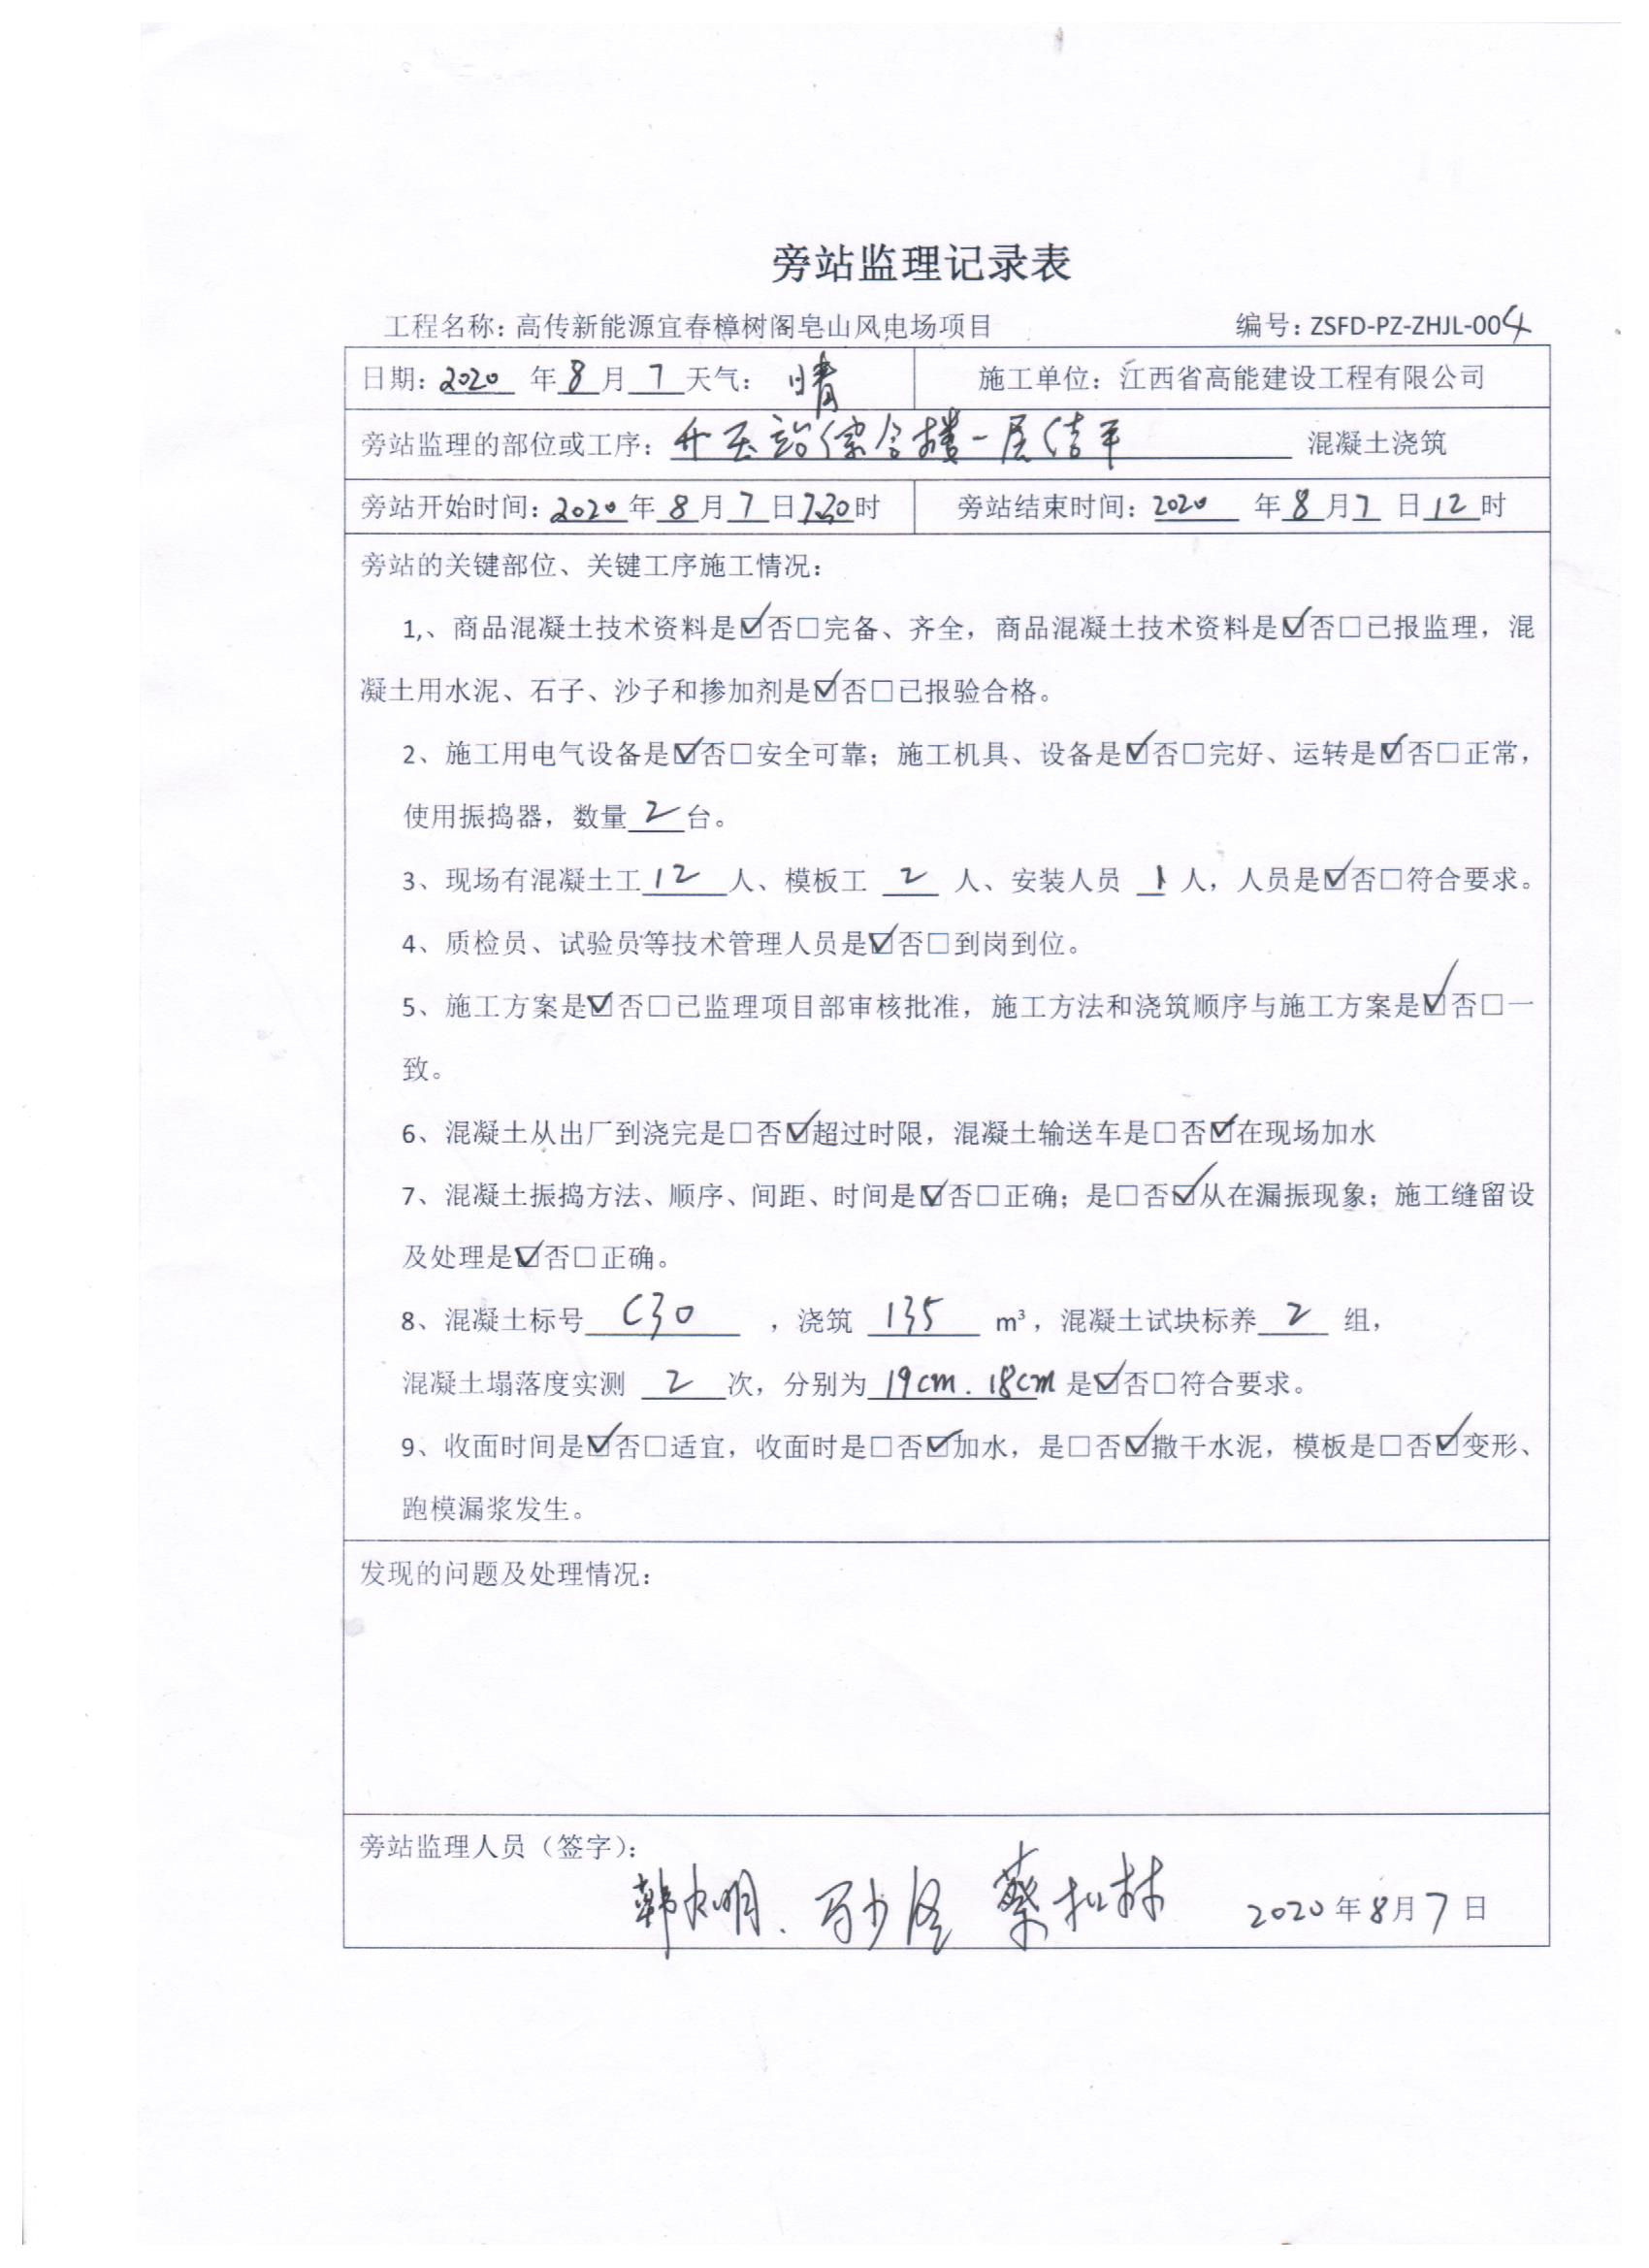 旁站监理记录表
工程名称：高传新能源宜春樟树阁皂山风电场项目 编号：ZSFD-PZ-ZHJL-004
日期：2020 年 8 月 7 天气： 晴 施工单位：江西省高能建设工程有限公司
旁站监理的部位或工序：升压站综合楼一层 混凝土浇筑
旁站开始时间：2020 年 8 月 7 日 7:30 时 旁站结束时间：2020 年 8 月 7 日 12 时
旁站的关键部位、关键工序施工情况：
1,、商品混凝土技术资料是☑否□完备、齐全，商品混凝土技术资料是☑否□已报监理，混
凝土用水泥、石子、沙子和掺加剂是☑否□已报验合格。
2、施工用电气设备是☑否□安全可靠；施工机具、设备是☑否□完好、运转是☑否□正常，
使用振捣器，数量 2 台。
3、现场有混凝土工 12 人、模板工 2 人、安装人员 1 人，人员是☑否□符合要求。
4、质检员、试验员等技术管理人员是☑否□到岗到位。
5、施工方案是☑否□已监理项目部审核批准，施工方法和浇筑顺序与施工方案是☑否□一
致。
6、混凝土从出厂到浇完是□否☑超过时限，混凝土输送车是□否☑在现场加水
7、混凝土振捣方法、顺序、间距、时间是☑否□正确；是□否☑从在漏振现象；施工缝留设
及处理是☑否□正确。
8、混凝土标号 C30 ，浇筑 135 m³，混凝土试块标养 2 组，
混凝土塌落度实测 2 次，分别为 19cm. 18cm 是☑否□符合要求。
9、收面时间是☑否□适宜，收面时是□否☑加水，是□否☑撒干水泥，模板是□否☑变形、
跑模漏浆发生。
发现的问题及处理情况：
旁站监理人员（签字）：
2020 年 8 月 7 日